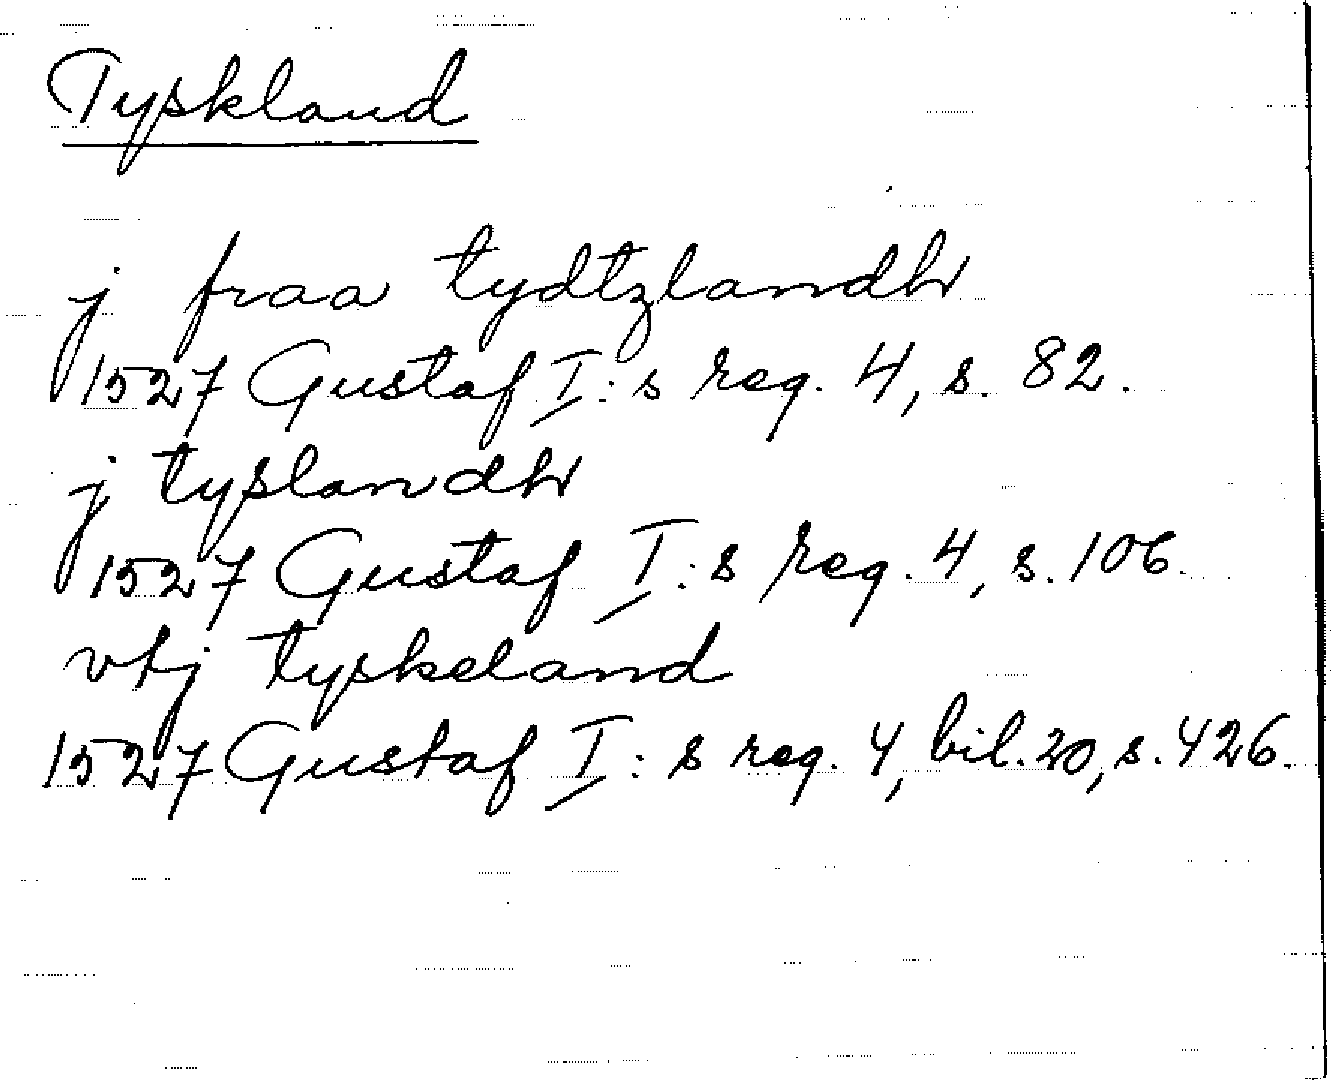 Tyskland
j fraa tydtzlandh
1527 Gustaf I:s reg. 4, s. 82.
j tyslandh
1527 Gustaf I:s reg. 4, s. 106.
vtj tyskeland
1527 Gustaf I:s reg. 4, bil. 20, s. 426.